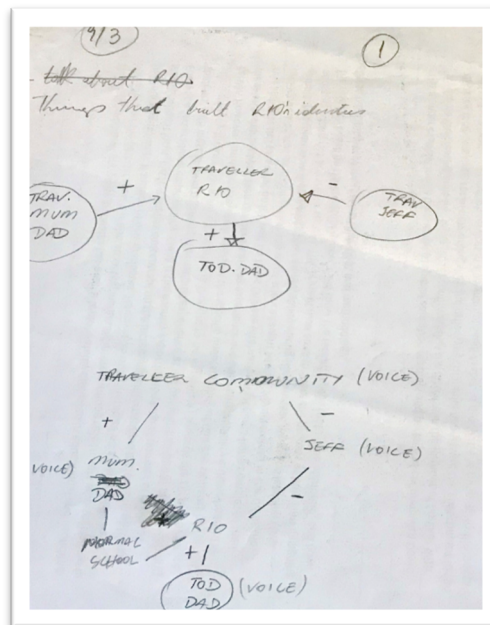 9/3
1
- talk about RIO.
Things that built RIO's identities
TRAVELLER
RIO
+
-
TRAV.
MUM
DAD
TRAV
JEFF
+
TOD. DAD
TRAVELLER COMMUNITY (VOICE)
+
-
JEFF (VOICE)
VOICE) MUM.
DAD
-
RIO
NORMAL
SCHOOL
+
TOD (VOICE)
DAD